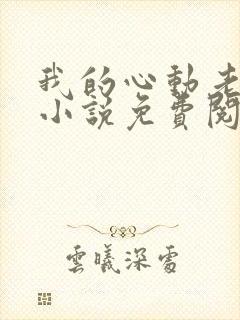 我的心動老
小説免費閱
雲曦深處